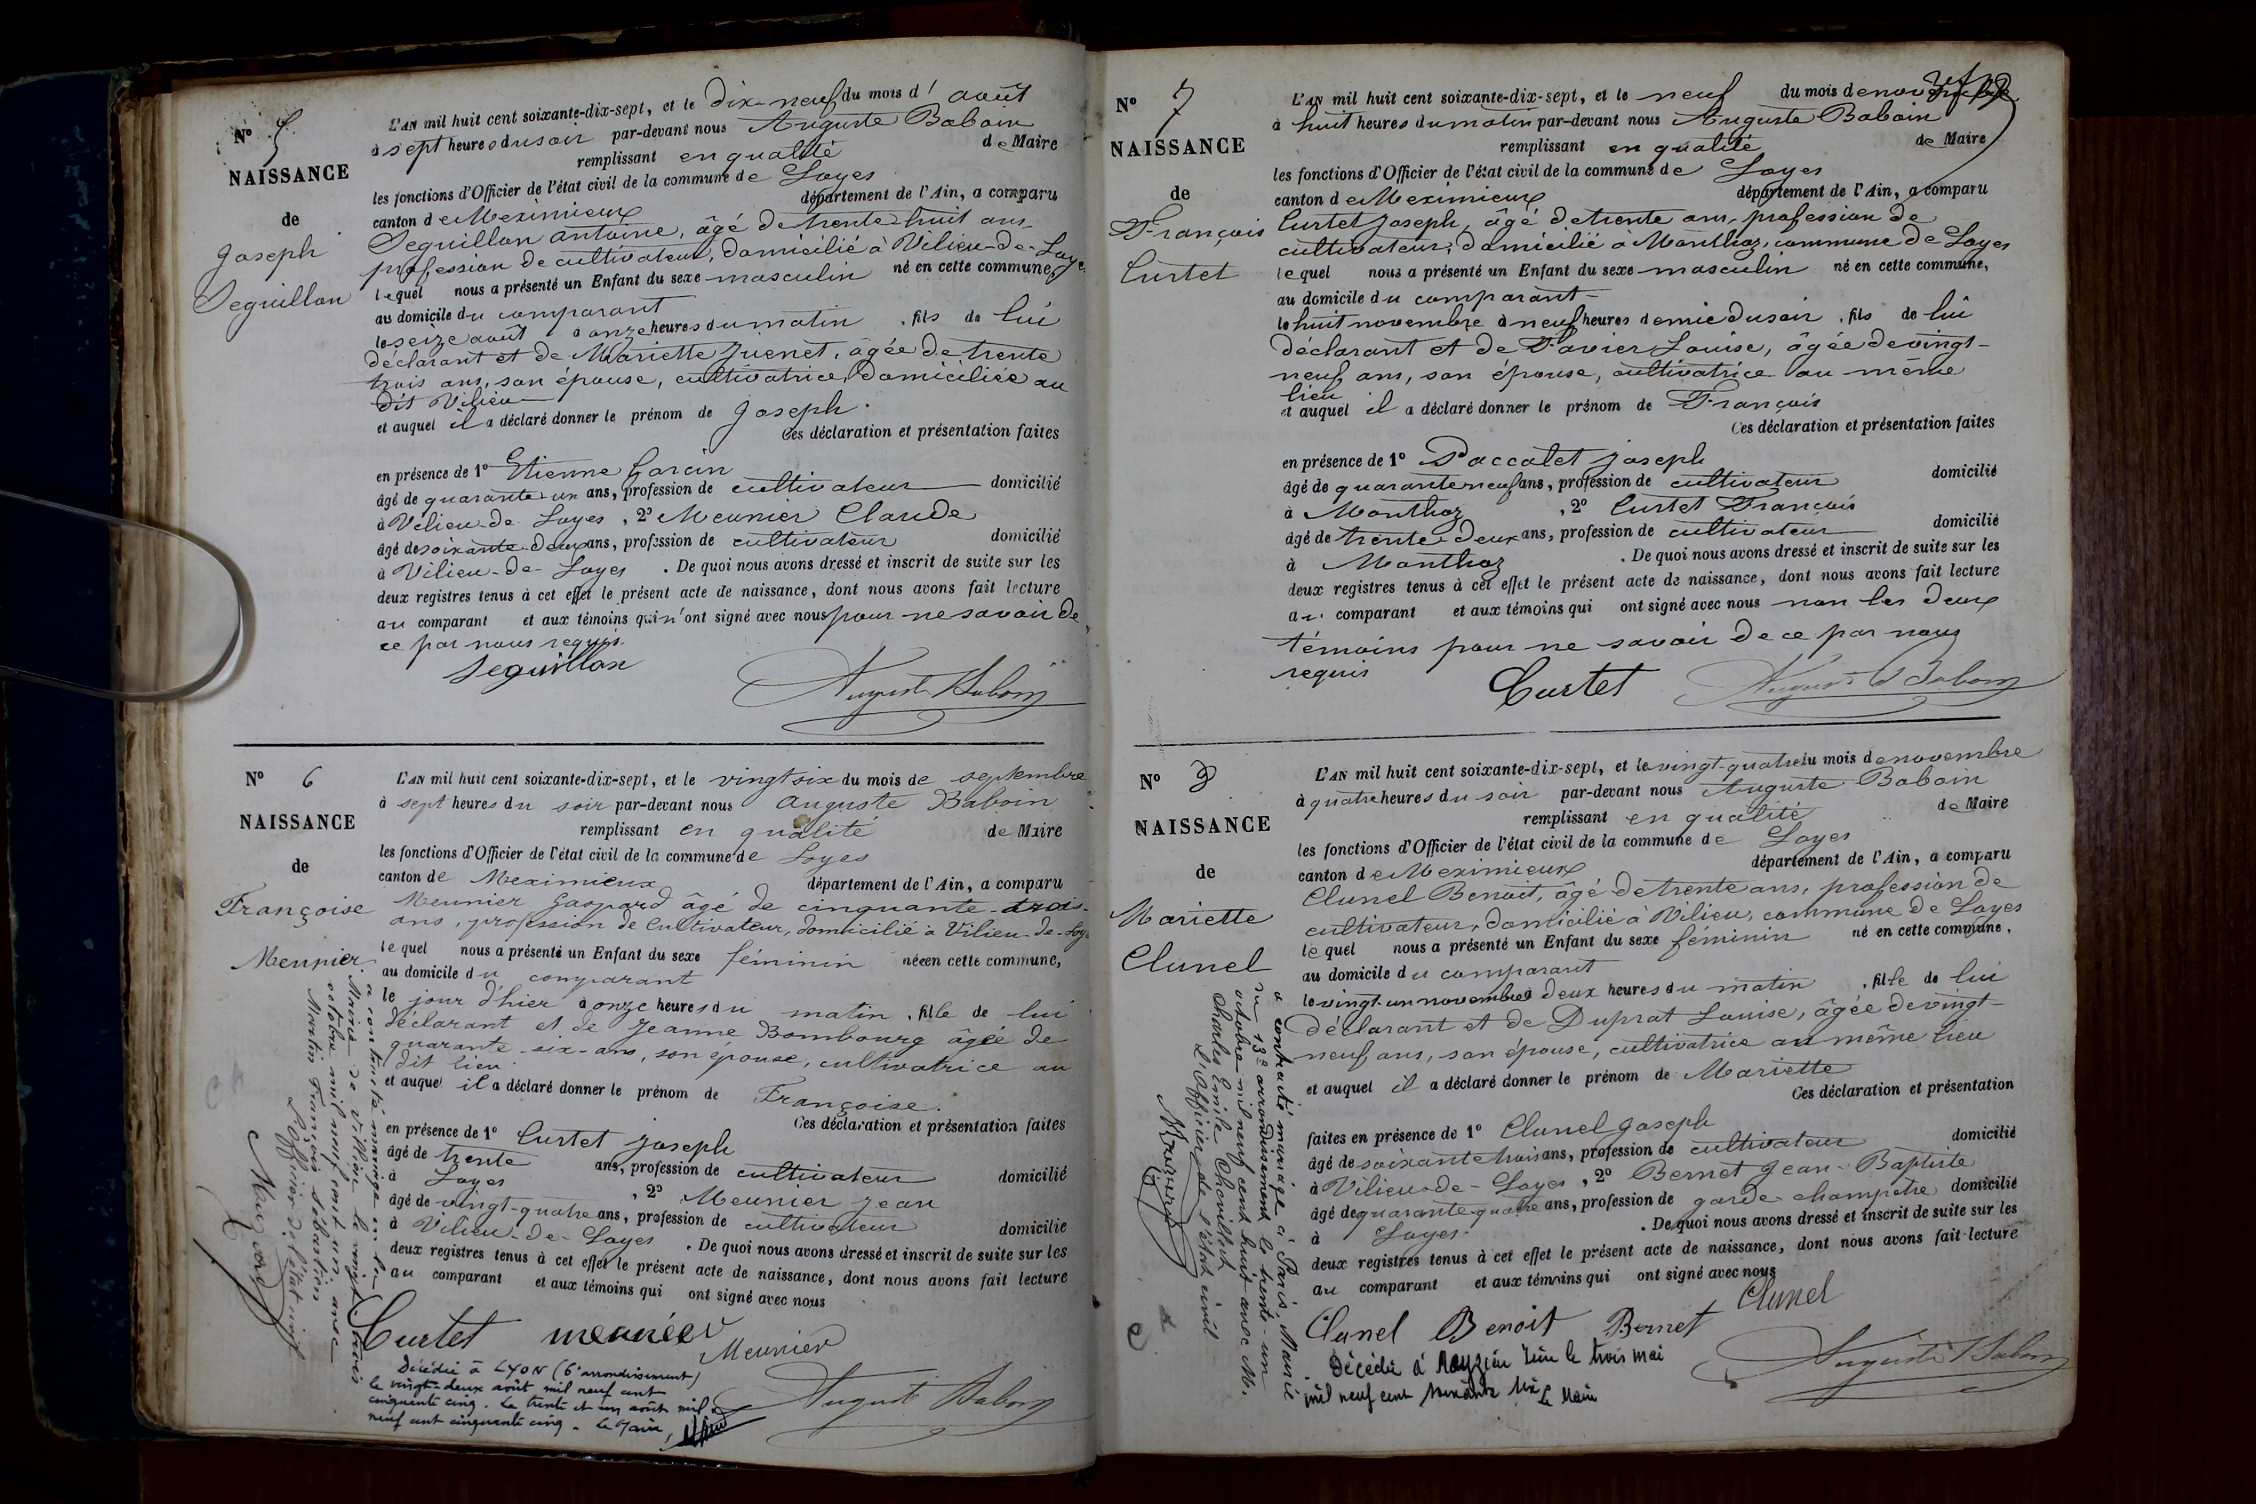 N° 5
NAISSANCE
de
Joseph
Seguillon
L'AN mil huit cent soixante-dix-sept, et le dix-neuf du mois d'août
à sept heures du soir par-devant nous Auguste Baboin
remplissant en qualité de Maire
les fonctions d'Officier de l'état civil de la commune de Loyes
canton de Meximieux département de l'Ain, a comparu
Seguillon antoine, âgé de trente-huit ans,
profession de cultivateur, domicilié à Vilieu-de-Loyes
lequel nous a présenté un Enfant du sexe masculin né en cette commune,
au domicile du comparant
le seize août à onze heures du matin, fils de lui
déclarant et de Mariette Juenet, âgée de trente
trois ans, son épouse, cultivatrice, domiciliée au
dit Vilieu
et auquel il a déclaré donner le prénom de Joseph.
Ces déclaration et présentation faites
en présence de 1° Etienne Garcin
âgé de quarante-un ans, profession de cultivateur domicilié
à Vilieu-de Loyes, 2° Meunier Claude
âgé de soixante-deux ans, profession de cultivateur domicilié
à Vilieu-de-Loyes. De quoi nous avons dressé et inscrit de suite sur les
deux registres tenus à cet effet le présent acte de naissance, dont nous avons fait lecture
au comparant et aux témoins qui n'ont signé avec nous pour ne savoir de
ce par nous requis.
seguillon
Auguste Baboin
N° 6
NAISSANCE
de
Françoise
Meunier
L'AN mil huit cent soixante-dix-sept, et le vingt six du mois de septembre
à sept heures du soir par-devant nous Auguste Baboin
remplissant en qualité de Maire
les fonctions d'Officier de l'état civil de la commune de Loyes
canton de Meximieux département de l'Ain, a comparu
Meunier Gaspard âgé de cinquante-trois-
ans, profession de cultivateur, domicilié à Vilieu-de-Loyes
lequel nous a présenté un Enfant du sexe féminin née en cette commune,
au domicile du comparant
le jour d'hier à onze heures du matin, fille de lui
déclarant et de Jeanne Bombourg âgée de
quarante-six-ans, son épouse, cultivatrice au
dit lieu
et auquel il a déclaré donner le prénom de Françoise.
Ces déclaration et présentation faites
en présence de 1° Curtet Joseph
âgé de trente ans, profession de cultivateur domicilié
à Loyes, 2° Meunier Jean
âgé de vingt-quatre ans, profession de cultivateur domicilié
à Vilieu-de-Loyes. De quoi nous avons dressé et inscrit de suite sur les
deux registres tenus à cet effet le présent acte de naissance, dont nous avons fait lecture
au comparant et aux témoins qui ont signé avec nous
Curtet meunier
Meunier
Auguste Baboin
a contracté mariage en la
Mairie de le vingt trois
octobre mil neuf cent un avec
Martin François Sébastien
L'Officier de l'état civil
Décédée à LYON (6e arrondissement)
le vingt-deux août mil neuf cent
cinquante cinq. Le trente et un août mil
neuf cent cinquante cinq. Le Maire,
N° 7
NAISSANCE
de
François
Curtet
L'AN mil huit cent soixante-dix-sept, et le neuf du mois de novembre
à huit heures du matin par-devant nous Auguste Baboin
remplissant en qualité de Maire
les fonctions d'Officier de l'état civil de la commune de Loyes
canton de Meximieux département de l'Ain, a comparu
Curtet Joseph, âgé de trente ans, profession de
cultivateur, domicilié à Monthoz, commune de Loyes
lequel nous a présenté un Enfant du sexe masculin né en cette commune,
au domicile du comparant
le huit novembre à neuf heures demie du soir, fils de lui
déclarant et de Favier Louise, âgée de vingt-
neuf ans, son épouse, cultivatrice au même
lieu
et auquel il a déclaré donner le prénom de François
Ces déclaration et présentation faites
en présence de 1° Paccalet Joseph
âgé de quarante neuf ans, profession de cultivateur domicilié
à Monthoz, 2° Curtet François
âgé de trente-deux ans, profession de cultivateur domicilié
à Monthoz. De quoi nous avons dressé et inscrit de suite sur les
deux registres tenus à cet effet le présent acte de naissance, dont nous avons fait lecture
au comparant et aux témoins qui ont signé avec nous non les deux
témoins pour ne savoir de ce par nous
requis
Curtet
Auguste Baboin
N° 8
NAISSANCE
de
Mariette
Clunel
L'AN mil huit cent soixante-dix-sept, et le vingt-quatre du mois de novembre
à quatre heures du soir par-devant nous Auguste Baboin
remplissant en qualité de Maire
les fonctions d'Officier de l'état civil de la commune de Loyes
canton de Meximieux département de l'Ain, a comparu
Clunel Benoit, âgé de trente ans, profession de
cultivateur, domicilié à Vilieu, commune de Loyes
lequel nous a présenté un Enfant du sexe féminin né en cette commune,
au domicile du comparant
le vingt-un novembre à deux heures du matin, fille de lui
déclarant et de Duprat Louise, âgée de vingt-
neuf ans, son épouse, cultivatrice au même lieu
et auquel il a déclaré donner le prénom de Mariette
Ces déclaration et présentation
faites en présence de 1° Clunel Joseph
âgé de soixante trois ans, profession de cultivateur domicilié
à Vilieu-de-Loyes, 2° Bernet Jean-Baptiste
âgé de quarante-quatre ans, profession de garde-champetre domicilié
à Loyes. De quoi nous avons dressé et inscrit de suite sur les
deux registres tenus à cet effet le présent acte de naissance, dont nous avons fait lecture
au comparant et aux témoins qui ont signé avec nous
Clunel
Clunel Benoit Bernet
Auguste Baboin
a contracté mariage à Paris, Mairie
du 13e arrondissement le trente-un
octobre mil neuf cent huit avec M.
Charles Emile Chevillard
L'officier de l'état civil
Décédée à le trois mai
mil neuf cent soixante six Le Maire